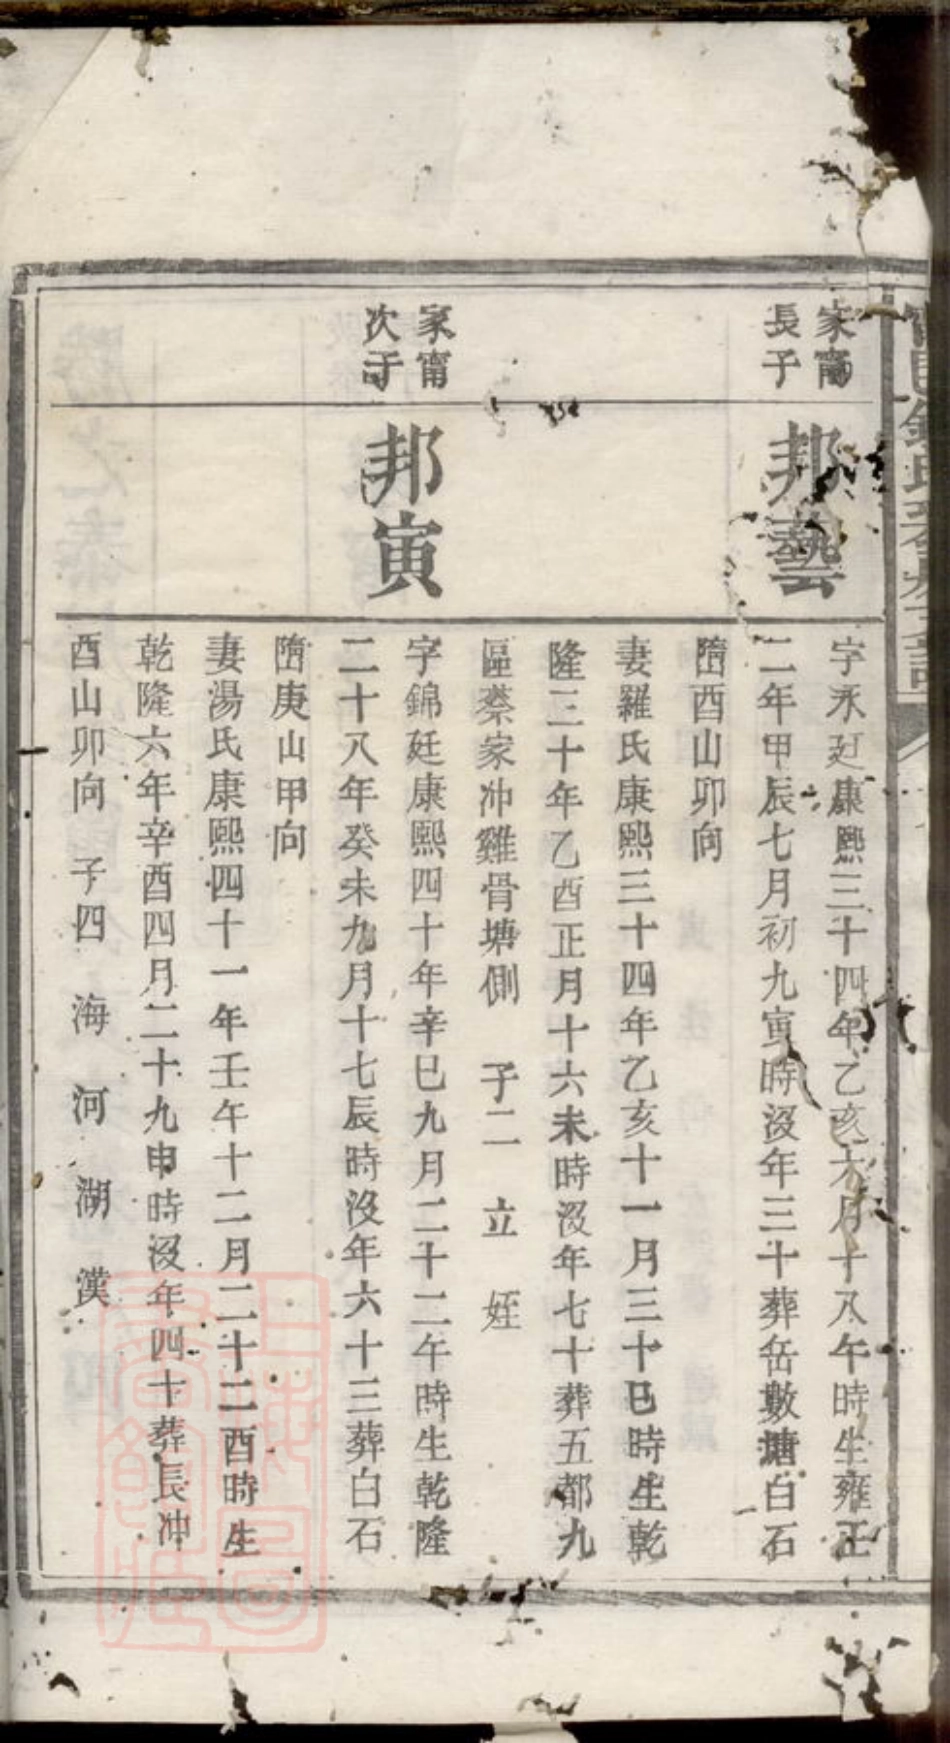 家甯
長子
邦藝
字永廷康熙三十四年乙亥六月十八午時生雍正
二年甲辰七月初九寅時沒年三十葬岳敷塘白石
磖酉山卯向
妻羅氏康熙三十四年乙亥十一月三十巳時生乾
隆三十年乙酉正月十六未時沒年七十葬五都九
區蔡家冲雞骨塘側 子二 立 姪
家甯
次子
邦寅
字錦廷康熙四十年辛巳九月二十二午時生乾隆
二十八年癸未九月十七辰時沒年六十三葬白石
磖庚山甲向
妻湯氏康熙四十一年壬午十二月二十二酉時生
乾隆六年辛酉四月二十九申時沒年四十葬長冲
酉山卯向 子四 海 河 湖 漢
上海圖書館藏